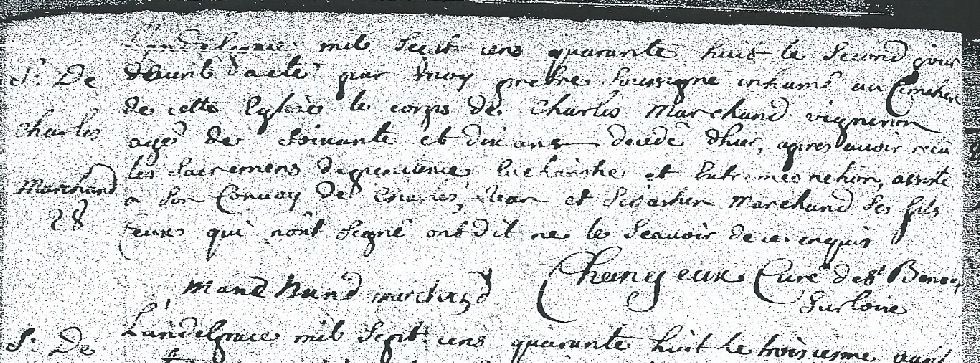 Landelgrace mil sept cens quarante huit le second jour
S. De
d'avril a eté par moy pretre soussigné inhumé au Cimetiere
de cette Eglise le corps de Charles Marchand vigneron
Charles
agé de soixante et dix ans decedé d'hier, apres avoir recu
Marchand
les Sacremens de penitence Eucharistie et Extremeonction, assisté
28
a son Convoy de Charles, Jean et Sebastien Marchand ses fils
ceux qui n'ont signé ont dit ne le scavoir de ce enquis
marchand
Changeux Curé de St Benoi
sur loire
S. De
Landelgrace mil Sept cens quarante huit le troisieme